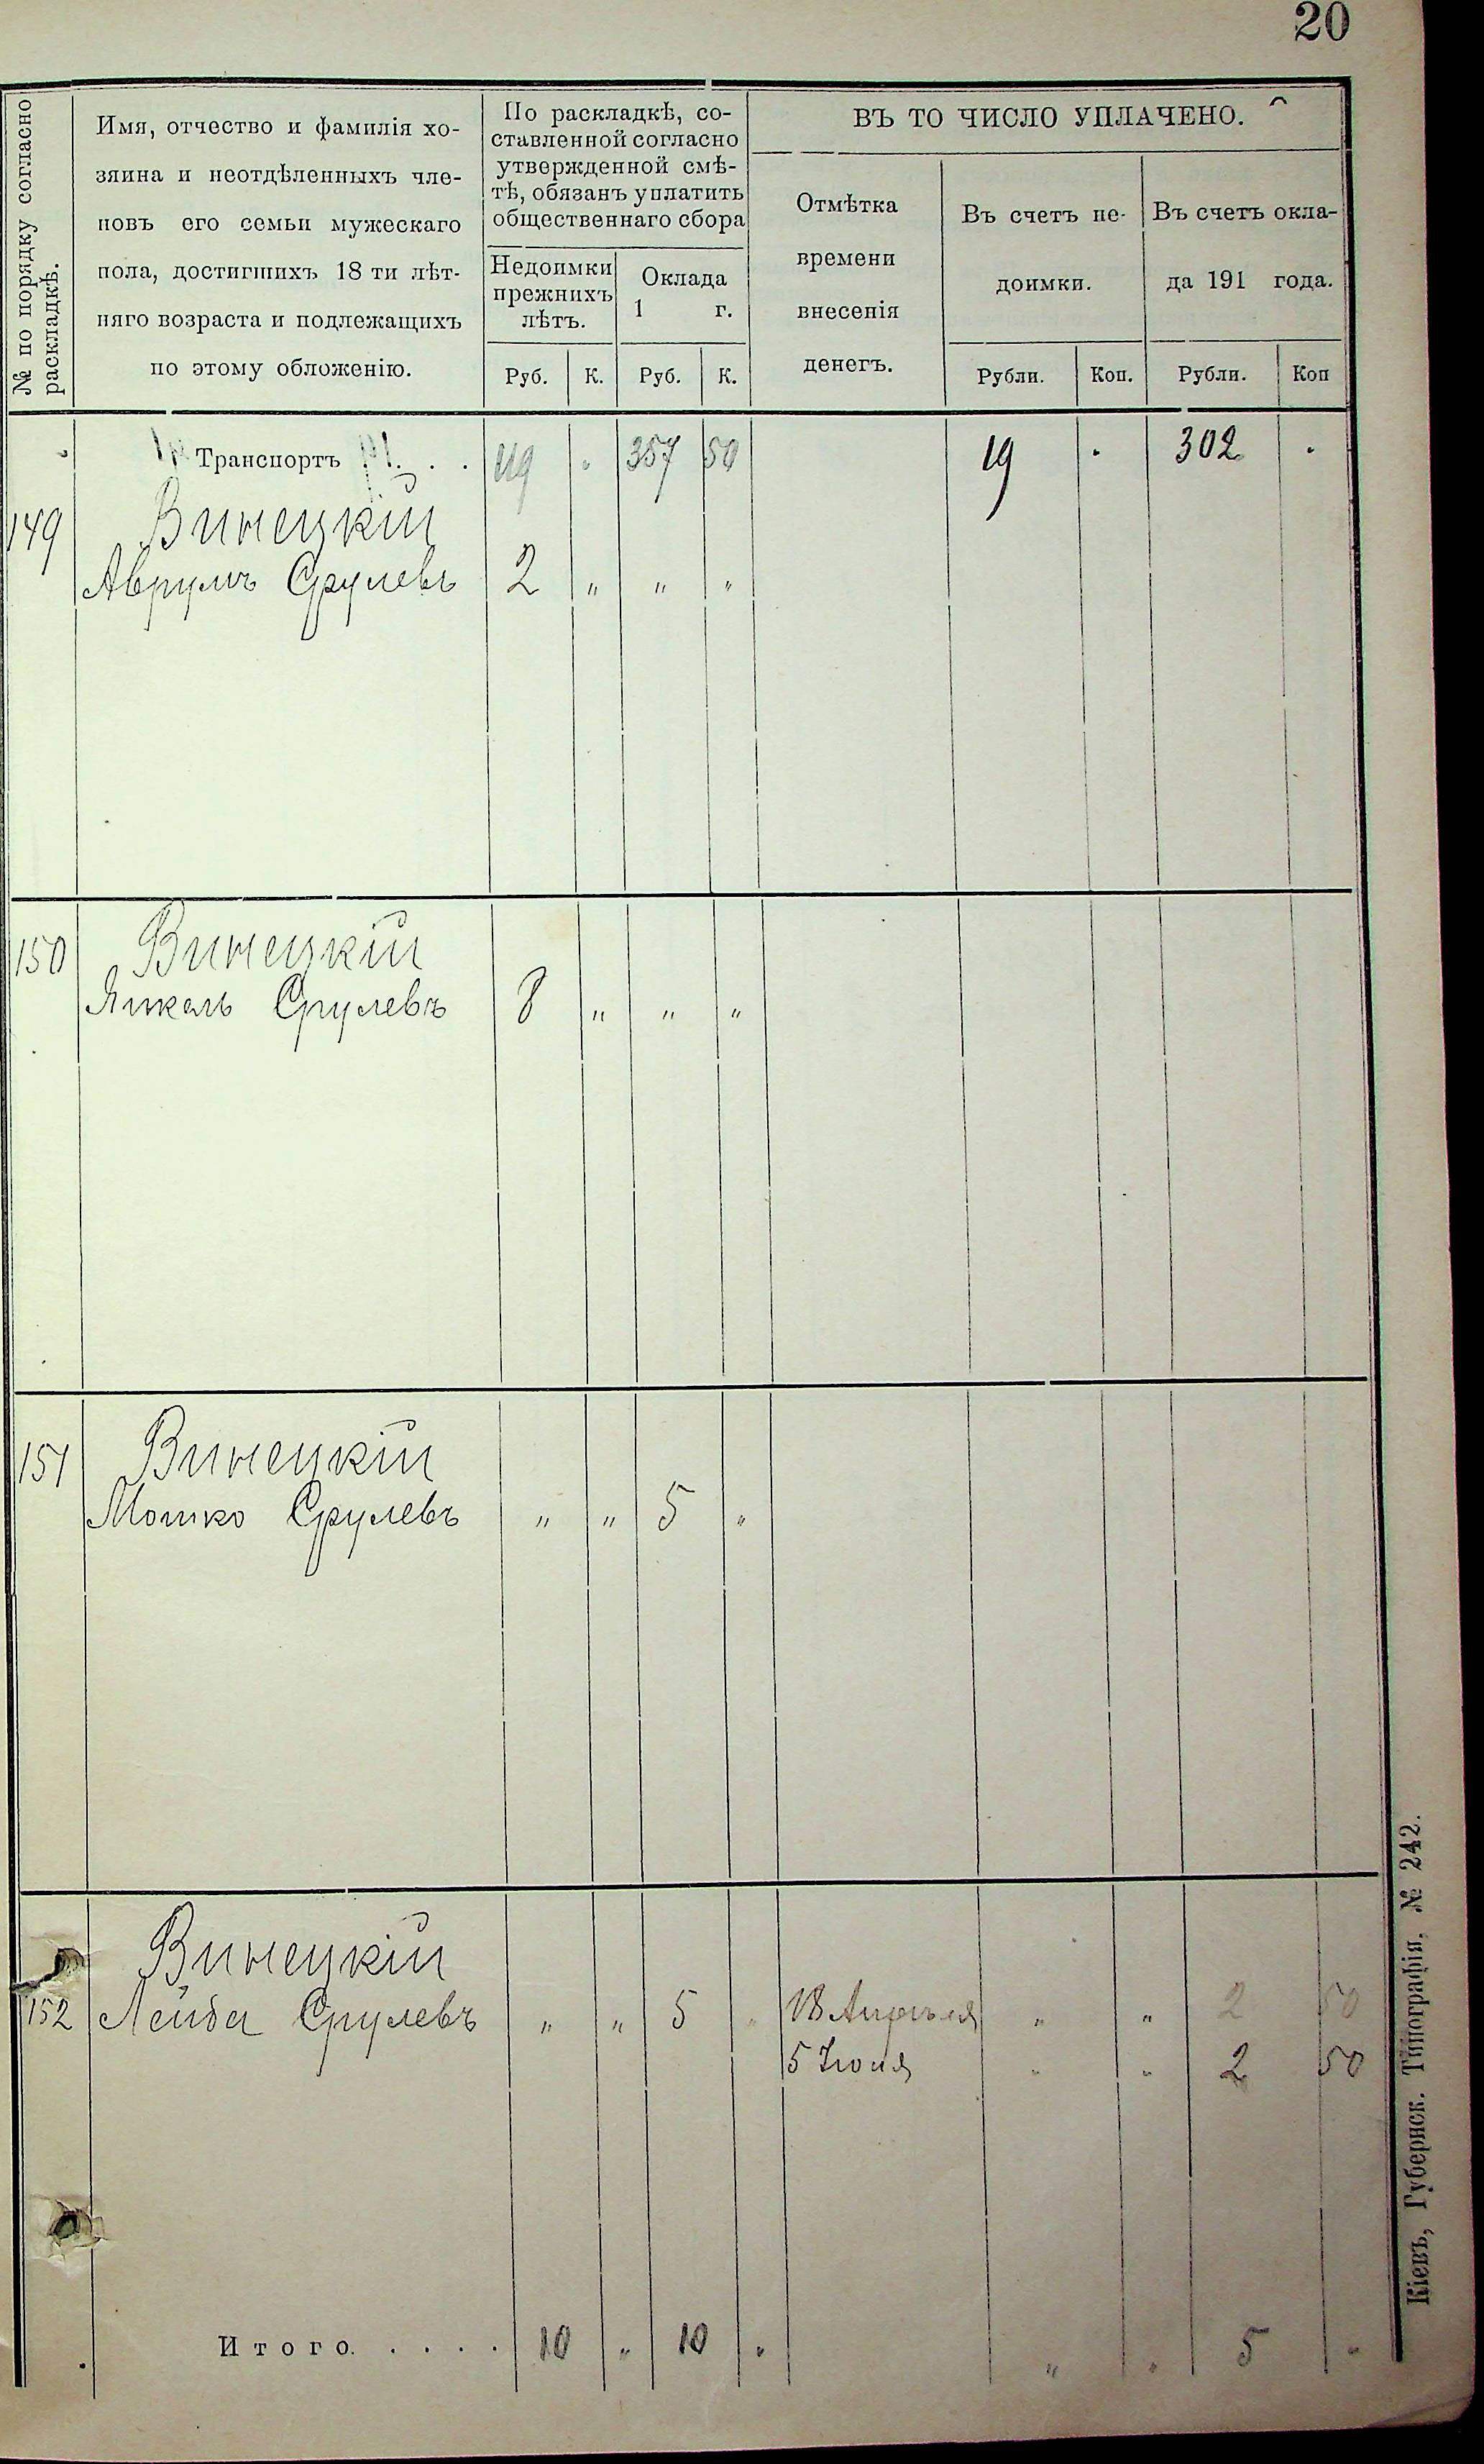 20
№ по порядку согласно
раскладкѣ.
Имя, отчество и фамилія хо-
зяина и неотдѣленныхъ чле-
новъ его семьи мужескаго
пола, достигшихъ 18 ти лѣт-
няго возраста и подлежащихъ
по этому обложенію.
По раскладкѣ, со-
ставленной согласно
утвержденной смѣ-
тѣ, обязанъ уплатить
общественнаго сбора
Недоимки
прежнихъ
лѣтъ.
Оклада
1 г.
Руб. К. Руб. К.
ВЪ ТО ЧИСЛО УПЛАЧЕНО.
Отмѣтка
времени
внесенія
денегъ.
Въ счетъ не-
доимки.
Въ счетъ окла-
да 191 года.
Рубли. Коп. Рубли. Коп
Транспортъ . . . 357 50 19 . 302 .
149 Винецкій
Аврумъ Срулевъ 2 „ „ „
150 Винецкій
Янкель Срулевъ 8 „ „ „
151 Винецкій
Мошко Срулевъ „ „ 5 „
Винецкій
152 Лейба Срулевъ „ „ 5 „ 18 Апрѣля „ „ 2 50
5 Іюля „ „ 2 50
Итого. . . . . 10 „ 10 „ „ „ 5 „
Кіевъ, Губернск. Типографія, № 242.